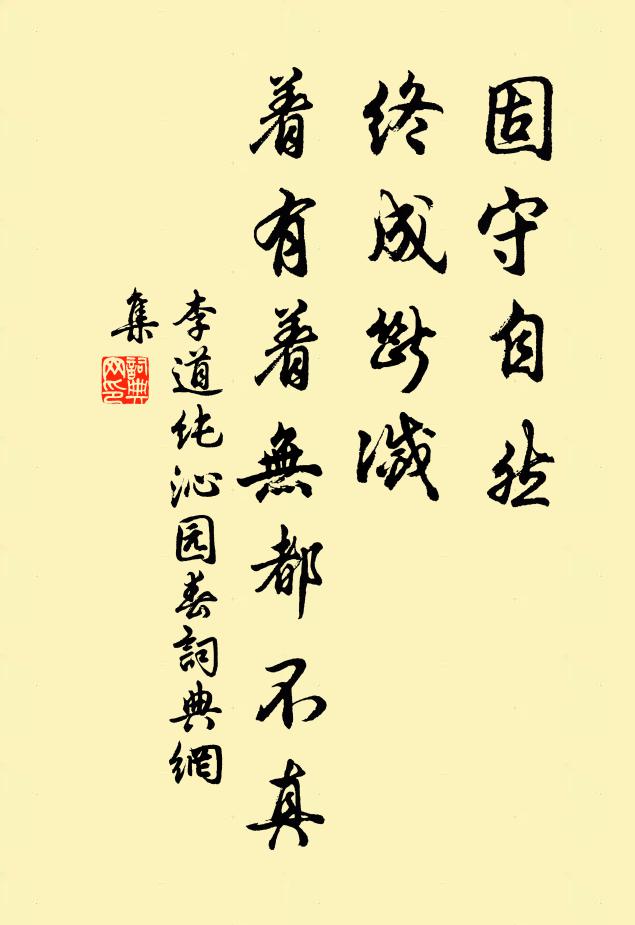 固守自然
終成斷滅
着有着無都不真
李道純沁园春詞典網
集
詞典
网印